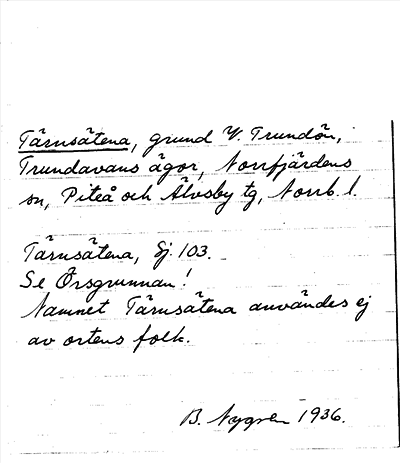 Tärnsätena, grund V. Trundön,
Trundavans ägor, Norrfjärdens
sn, Piteå och Älvsby tg, Norrb. l.
Tärnsätena, Sj. 103.
Se Örsgrunnan!
Namnet Tärnsätena användes ej
av ortens folk.
B. Nygren 1936.